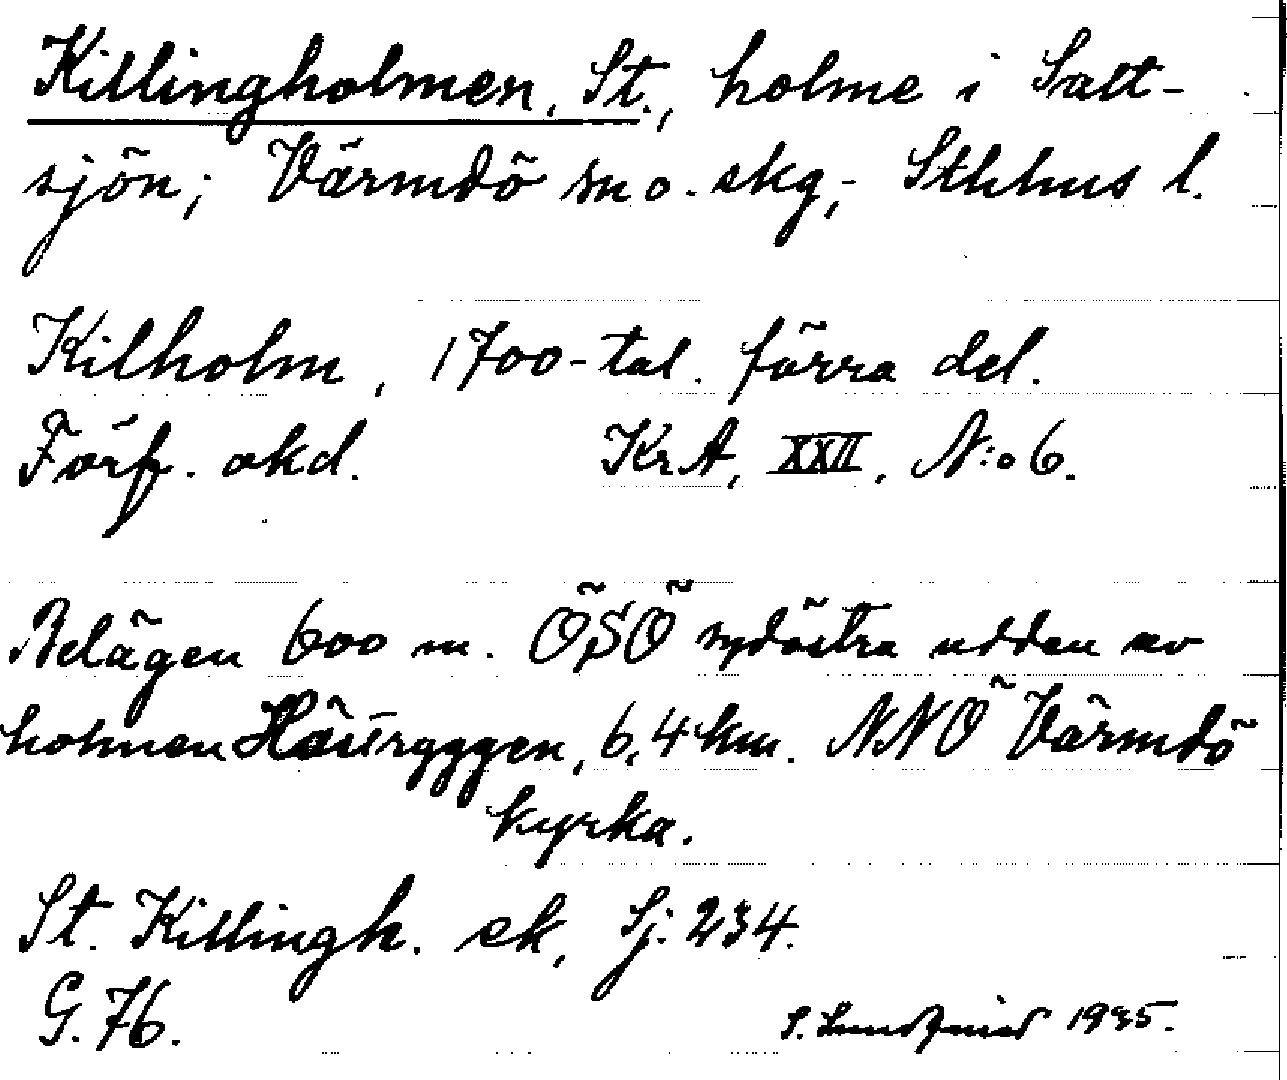 Killingholmen, St., holme i Salt-
sjön; Värmdö sn o. skg, Sthlms l.
Kilholm, 1700-tal. förra del.
Förf. okd. KrA, XXII, N:o 6.
Belägen 600 m. ÖSÖ sydöstra udden av
holmen Häusryggen, 6,4 km. NNÖ Värmdö
kyrka.
St. Killingh. ek, Sj. 234.
G. 76. 1935.